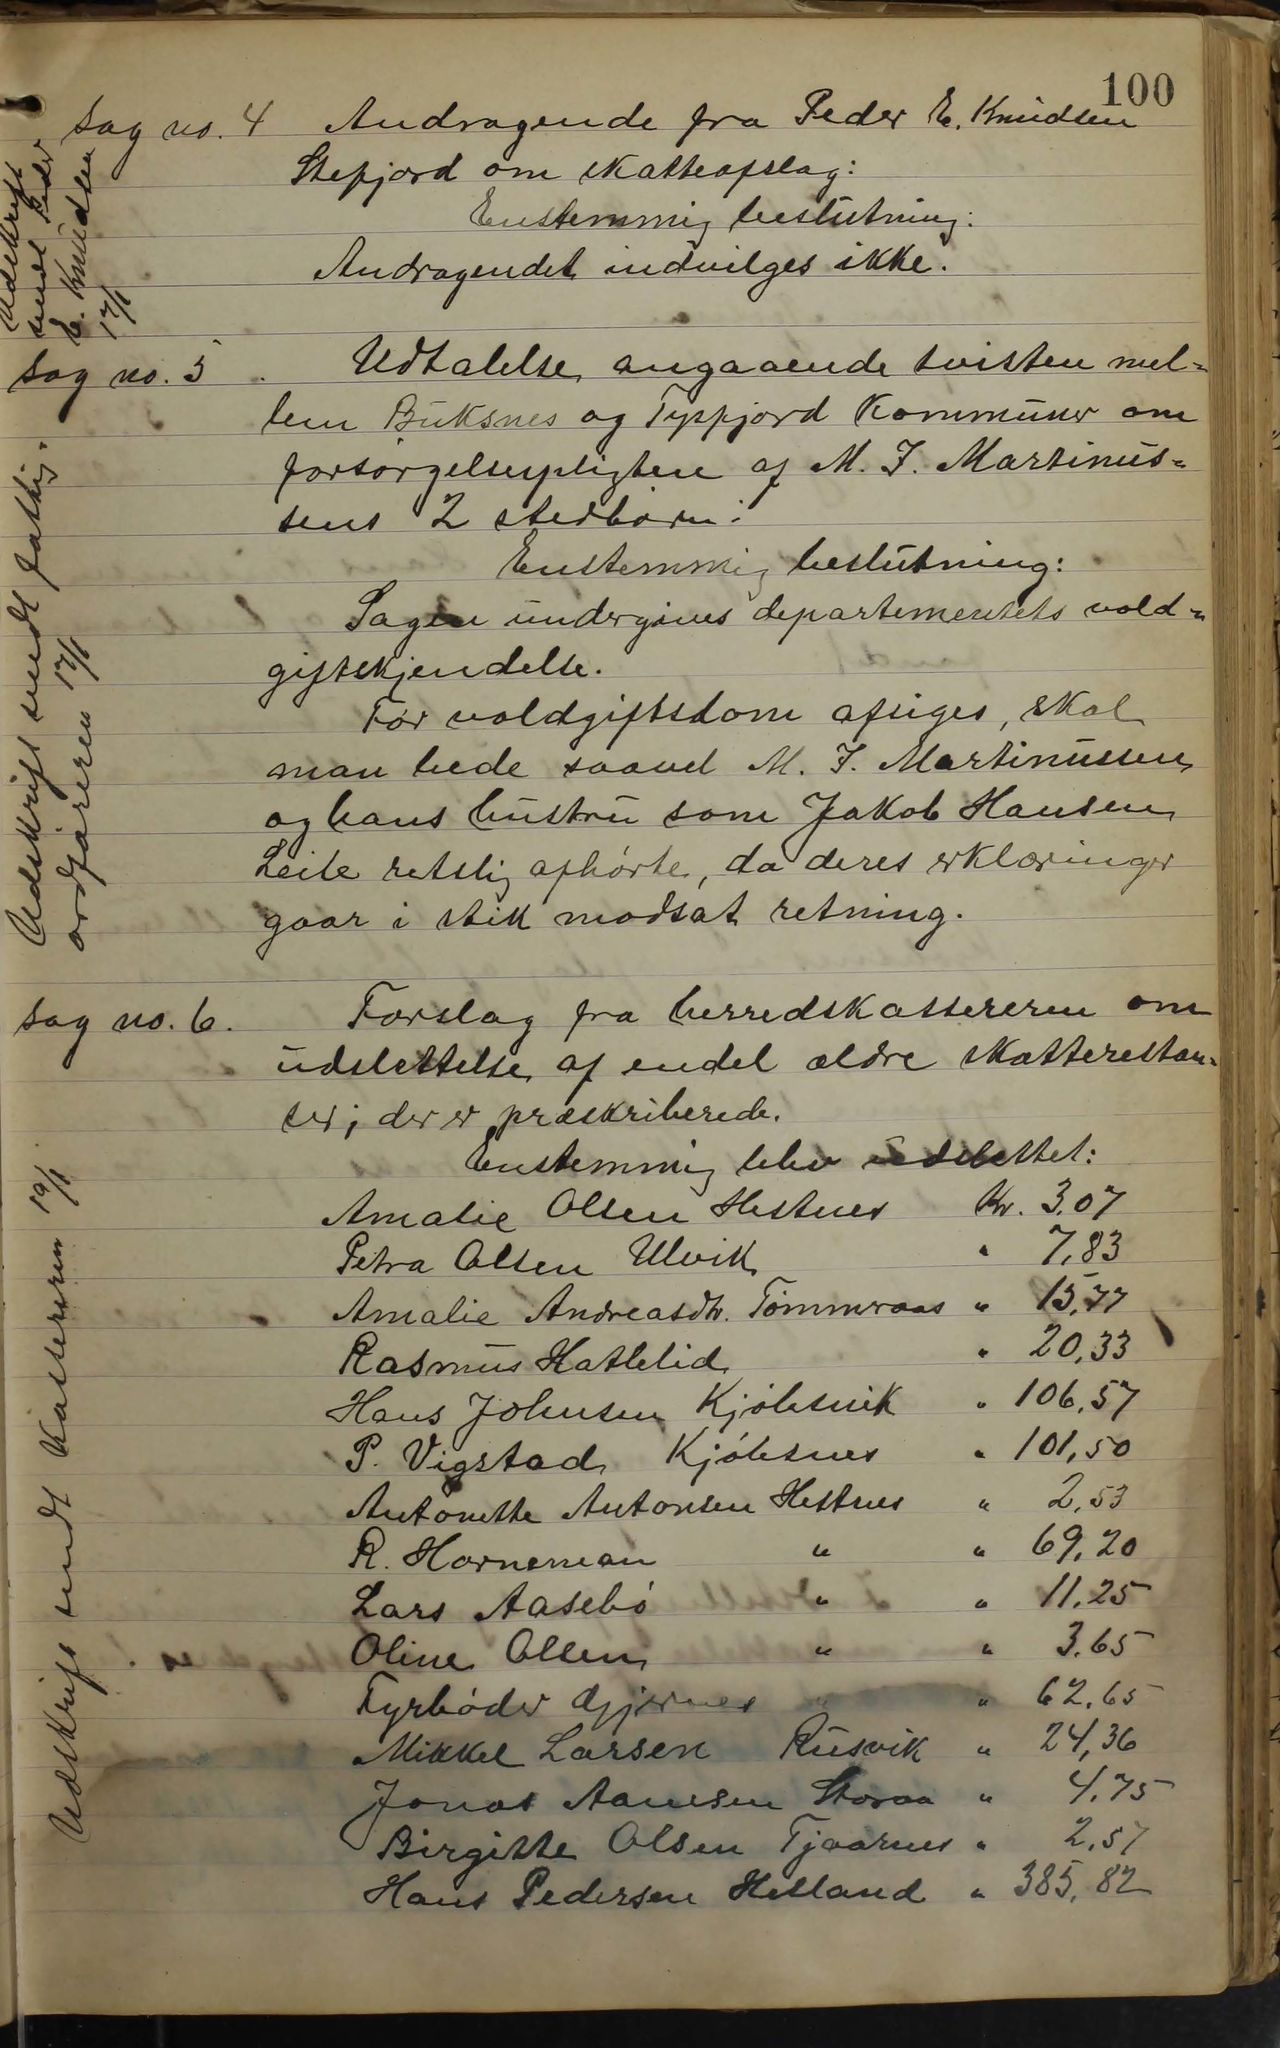 100
Sag no. 4 Andragende fra Peder E. Knudsen
Stefjord om skatteafslag:
Enstemmig beslutning:
Andragendet indvilges ikke.
Udskrift
sendt Peder
E. Knudsen
17/1
Sag no. 5 Udtalelse angaaende tvisten mel-
lem Buksnes og Tysfjord kommuner om
forsørgelsespligten af M. J. Martinus-
sens 2 stedbørn:
Enstemmig beslutning:
Sagen undergives departementets vold-
giftskjendelse.
Før voldgiftsdom afsiges, skal
man bede saavel M. J. Martinussen
og hans hustru som Jakob Hansen
Leite retslig afhørte, da deres erklæringer
gaar i stik modsat retning.
Udskrift sendt fattig-
ordføreren 17/1
Sag no. 6. Forslag fra herredskassereren om
udslettelse af endel ældre skatterestan-
ser, der er præskriberede.
Enstemmig blev udslettet:
Amalie Olsen Hestnes Kr. 3.07
Petra Olsen Ulvik " 7,83
Amalie Andreasdtr. Tømmeraas " 15,77
Rasmus Hatlelid " 20,33
Hans Johnsen Kjøbsvik " 106,57
P. Vigstad Kjøbsnes " 101,50
Antonette Antonsen Hestnes " 2,53
R. Horneman " " 69,20
Lars Aasebø " " 11,25
Oline Olsen " " 3.65
Fyrbøder Gjernes " " 62,65
Mikkel Larsen Rusvik " 24,36
Jonas Aamsen Storaa " 4,75
Birgitte Olsen Tjaarnes " 2,57
Hans Pedersen Helland " 385,82
Udskrift sendt kassereren 19/1